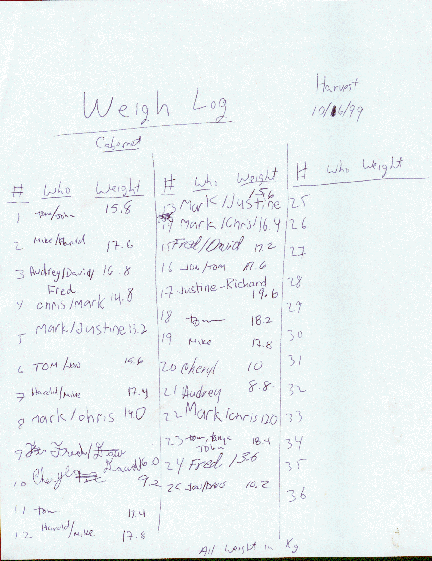 Harvest
10/16/99
Weigh Log
Cabernet
# Who Weight
1 Tom/John 15.8
2 Mike/Harold 17.6
3 Audrey/David/Fred 16.8
4 Chris/Mark 14.8
5 Mark/Justine 13.2
6 Tom/ 15.6
7 Harold/Mike 17.4
8 Mark/Chris 14.0
9 Fred/
10 Cheryl 9.2
11 Tom 11.4
12 Harold/Mike 17.8
# Who Weight
13 Mark/Justine 15.6
14 Mark/Chris 16.4
15 Fred/David 17.2
16 Jon/Tom 17.6
17 Justine-Richard 19.6
18 Tom 18.2
19 Mike 17.8
20 Cheryl 10
21 Audrey 8.8
22 Mark/Chris 12.0
23 Tom, 18.4
24 Fred 13.6
25 10.2
# Who Weight
25
26
27
28
29
30
31
32
33
34
35
36
All weight in Kg